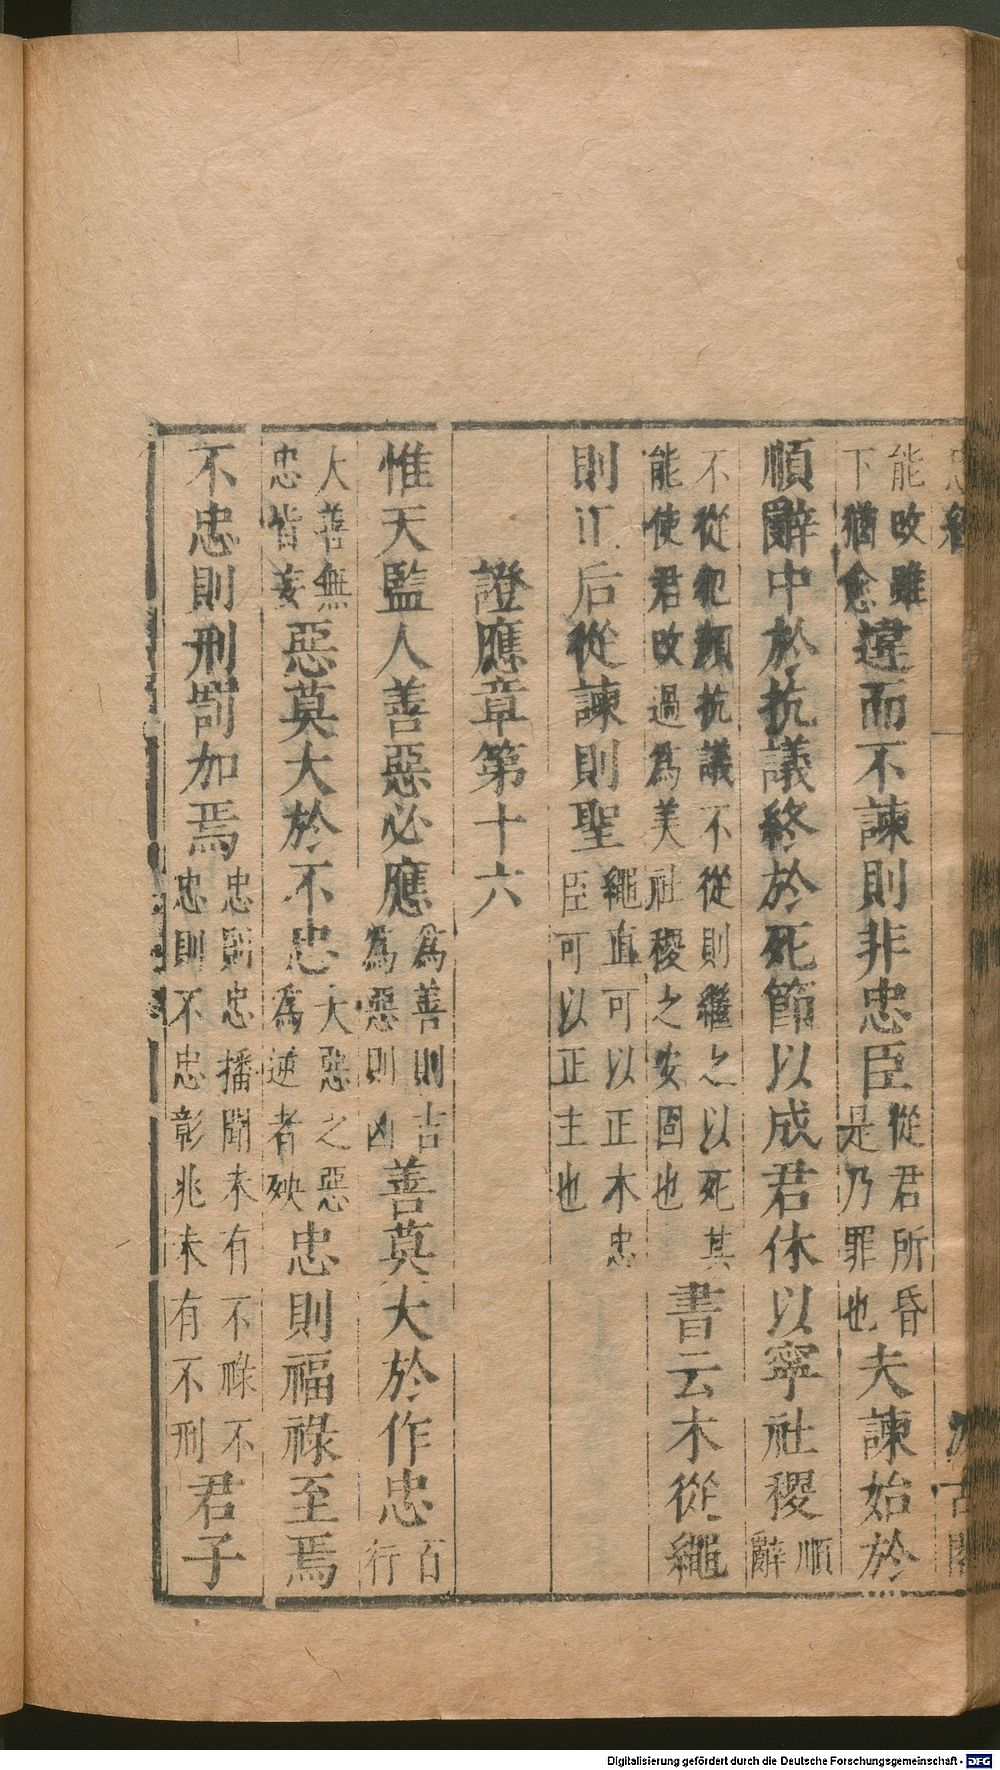 能改雖下猶愈違而不諫則非忠臣從君所昏是乃罪也夫諫始於
順辭中於抗議終於死節以成君休以寧社稷順辭
不從犯顏抗議不從則繼之以死其能使君改過為美社稷之安固也書云木從繩
則正后從諫則聖繩直可以正木忠臣可以正主也
證應章第十六
惟天監人善惡必應為善則吉為惡則凶善莫大於作忠百行
大善無忠皆妄惡莫大於不忠大惡之惡為逆者殃忠則福祿至焉
不忠則刑罰加焉忠則忠播聞未有不祿不忠則不忠彰兆未有不刑君子
Digitalisierung gefördert durch die Deutsche Forschungsgemeinschaft - DFG